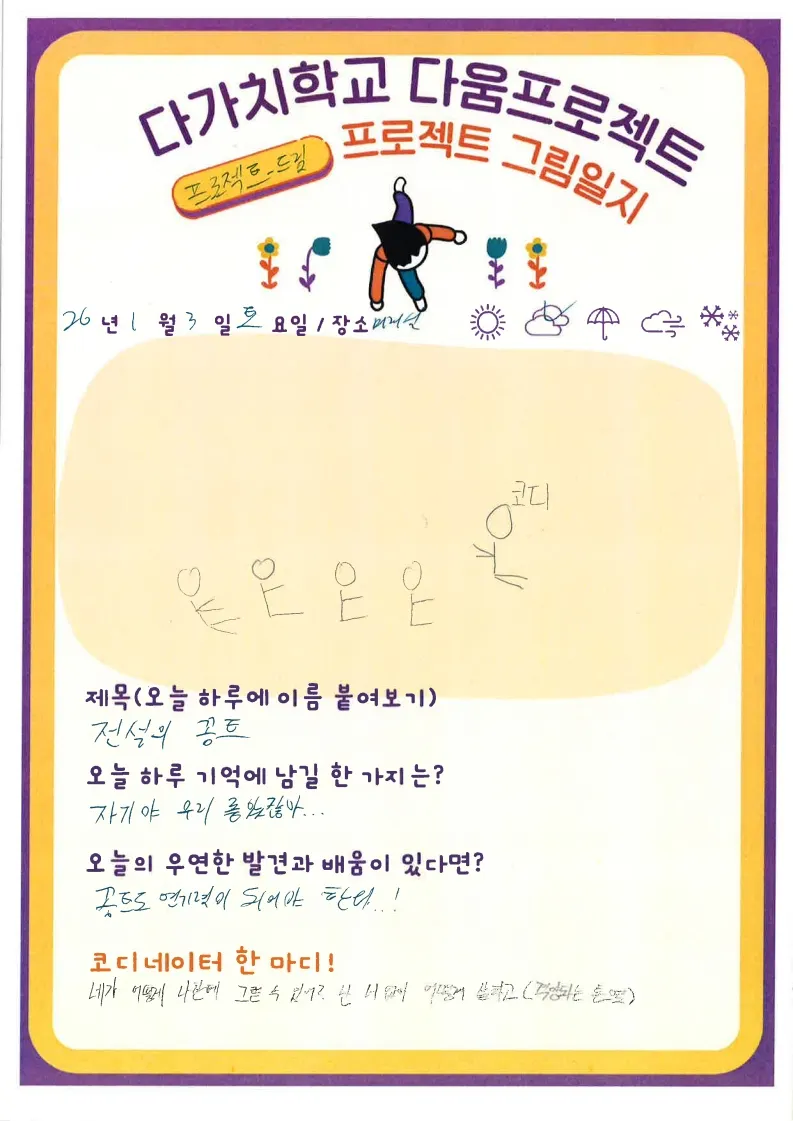 다가치학교 다움프로젝트
프로젝트 그림일지
프로젝트-드림
26 년 1 월 3 일 토 요일 / 장소
코디
제목(오늘 하루에 이름 붙여보기)
전설의 꽁트
오늘 하루 기억에 남길 한 가지는?
자기야 우리 좋았잖아...
오늘의 우연한 발견과 배움이 있다면?
꽁트도 연기력이 되어야 한다..!
코디네이터 한 마디!
네가 어떻게 나한테 그럴 수 있어? 난 너 없이 어떻게 살라고 (